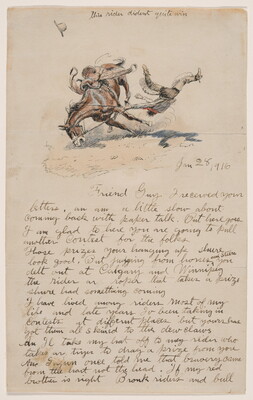 this rider dident quite win
Jan 28, 1916
Friend Guy I received your
letters, an am a little slow about
coming back with paper talk. But here goes
I am glad to here you are going to pull
another contest for the folks
Those prizes your hanging up shure
look good. But judging from horses
delt out at Calgary and Winnipeg
the rider or roper that takes a prize
shure had something coming
I have lived among riders most of my
life and late years Iv been taking in
contests at different places but yours has
got them all skined to the dew claws
an Il take my hat off to any rider who
takes
from the hart not the head. If my red
brother is right Bronk riders and bull